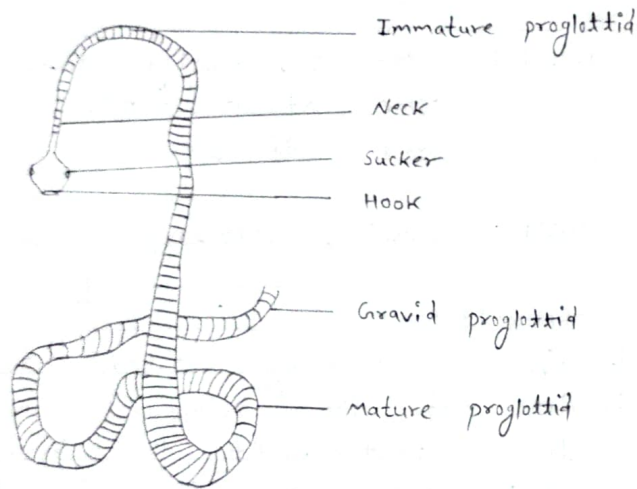 Immature proglottid
Neck
Sucker
Hook
Gravid proglottid
Mature proglottid